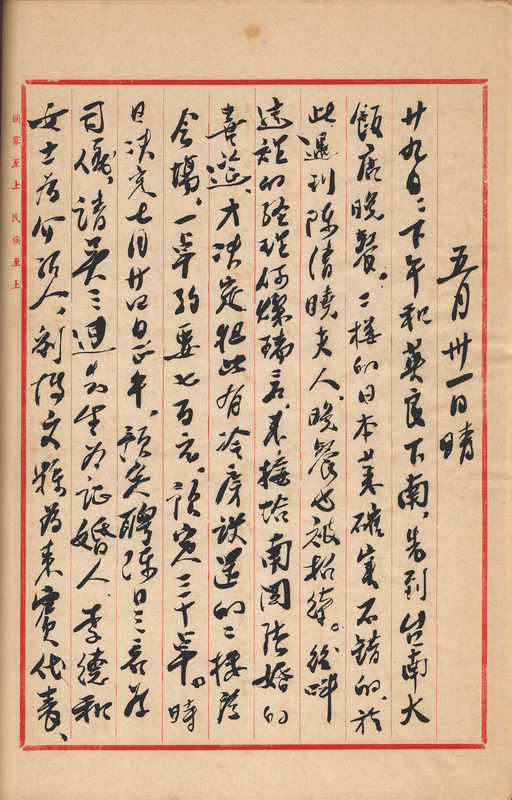 五月卅一日晴
廿九日:下午和英良下南,先到台南大
飯店晚餐。二樓的日本菜確實不錯的,於
此遇到陳清曉夫人,晚餐也被招待。後叫
這裡的經理何燦瑞君,來接洽南圖結婚的
喜筵,才決定租此有冷房設置的二樓為
会場,一卓約要七百元,預定三十卓。時
日決定七月廿四日正午,預定聘陳日三君為
司儀,請吳三連先生為証婚人,李德和
女士為介紹人,劉博文為來賓代表、
國家至上 民族至上